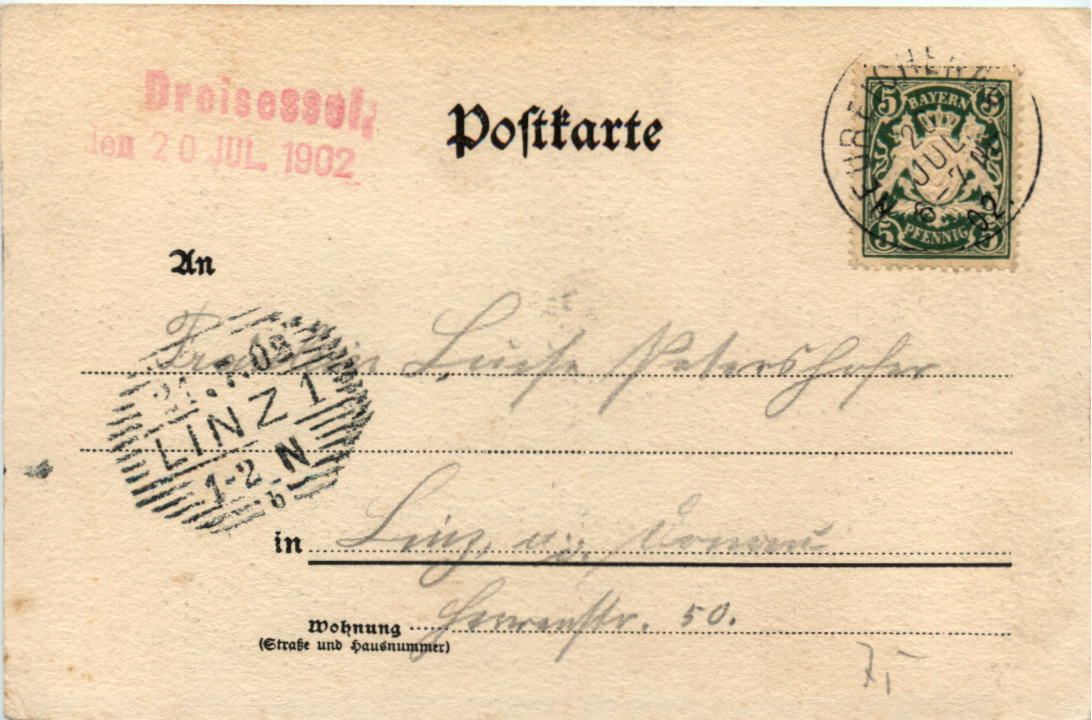 Dreisessel,
den 20 JUL. 1902
Postkarte
NEUREICHENAU
20
JUL.
6-7 N
02.
5 BAYERN 5
5 PFENNIG 5
An
Fräulein Luise Petershofer
21.7.02
LINZ 1
1-2 N
b
in Linz a/d. Donau
Wohnung Herrenstr. 50.
(Straße und Hausnummer)
7,-